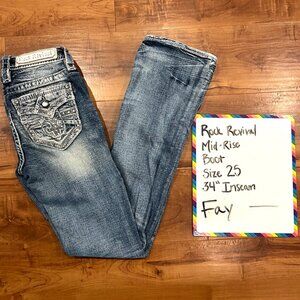 Rock Revival
Mid-Rise
Boot
Size 25
34" Inseam
Fay